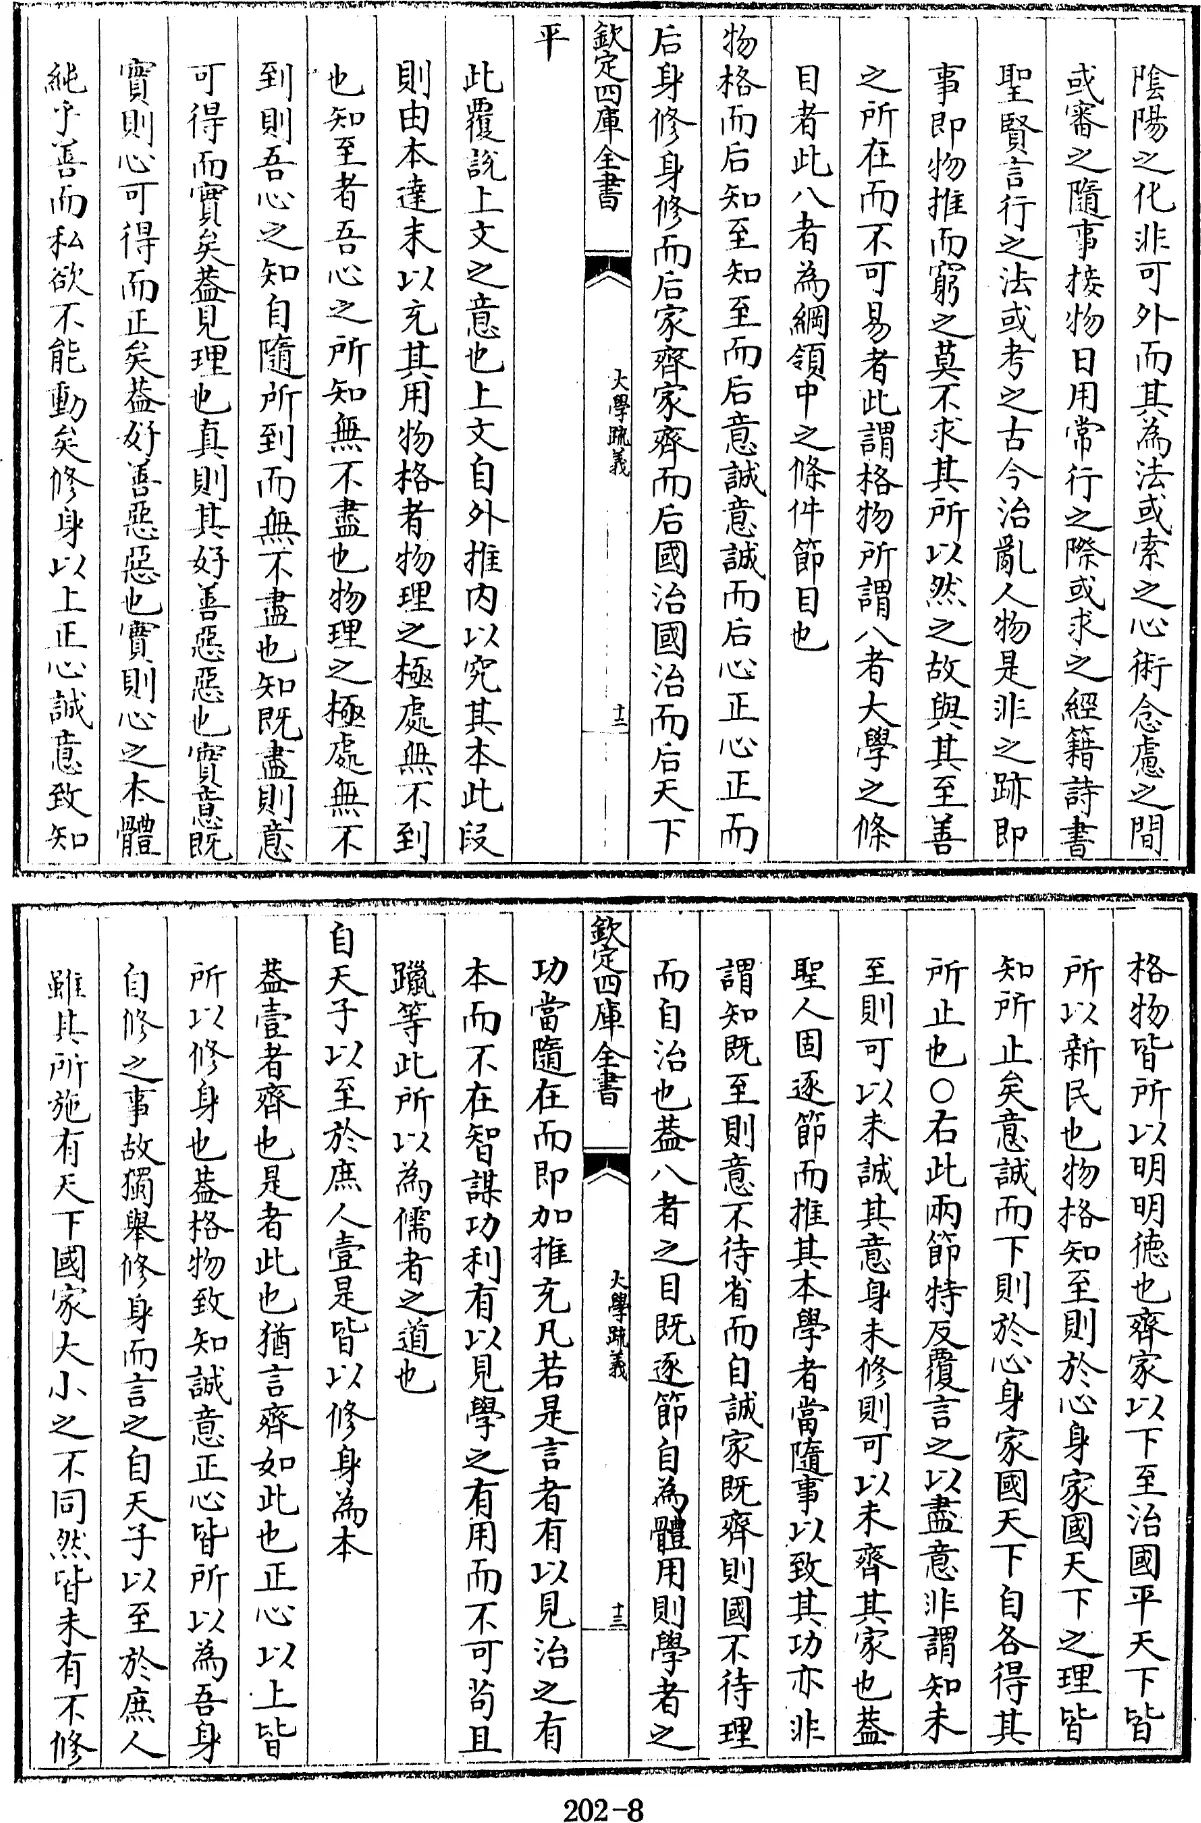 陰陽之化非可外而其為法或索之心術念慮之間
或審之隨事接物日用常行之際或求之經籍詩書
聖賢言行之法或考之古今治亂人物是非之跡即
事即物推而窮之莫不求其所以然之故與其至善
之所在而不可易者此謂格物所謂八者大學之條
目者此八者為綱領中之條件節目也
物格而后知至知至而后意誠意誠而后心正心正而
后身修身修而后家齊家齊而后國治國治而后天下
欽定四庫全書
大學疏義
十二
平
此覆說上文之意也上文自外推內以究其本此段
則由本達末以充其用物格者物理之極處無不到
也知至者吾心之所知無不盡也物理之極處無不
到則吾心之知自隨所到而無不盡也知既盡則意
可得而實矣蓋見理也真則其好善惡惡也實意既
實則心可得而正矣蓋好善惡惡也實則心之本體
純乎善而私欲不能動矣修身以上正心誠意致知
格物皆所以明明德也齊家以下至治國平天下皆
所以新民也物格知至則於心身家國天下之理皆
知所止矣意誠而下則於心身家國天下自各得其
所止也○右此兩節特反覆言之以盡意非謂知未
至則可以未誠其意身未修則可以未齊其家也蓋
聖人固逐節而推其本學者當隨事以致其功亦非
謂知既至則意不待省而自誠家既齊則國不待理
而自治也蓋八者之目既逐節自為體用則學者之
欽定四庫全書
大學疏義
十三
功當隨在而即加推充凡若是言者有以見治之有
本而不在智謀功利有以見學之有用而不可苟且
躐等此所以為儒者之道也
自天子以至於庶人壹是皆以修身為本
蓋壹者齊也是者此也猶言齊如此也正心以上皆
所以修身也蓋格物致知誠意正心皆所以為吾身
自修之事故獨舉修身而言之自天子以至於庶人
雖其所施有天下國家大小之不同然皆未有不修
202-8